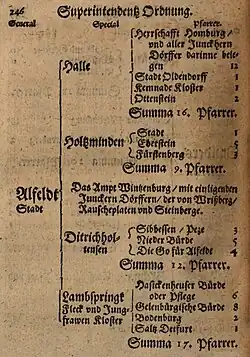 246 Superintendentz Ordnung.
General Special Pfarrer.
Herrschafft Homburg/
und aller Junckhern
Dörffer darinne bele-
gen 12
Halle
Stadt Oldendorff 1
Kemnade Kloster 1
Ottenstein 2
Summa 16. Pfarrer.
Stadt 1
Holtzminden
Eberstein 5
Fürstenberg 3
Summa 9. Pfarrer.
Alfeldt
Stadt
Das Ampt Wintzenburg/ mit einligenden
Junckern Dörffern/ der von Wrißberg/
Rauscheplaten und Steinberge.
Ditrichhol-
tensen
Sibbessen/ Peze 3
Nieder Börde 5
Die Go für Alfeldt 4
Summa 12. Pfarrer.
Lambspringk
Fleck und Jung-
frawen Kloster
Hasickenhuser Börde
oder Pflege 6
Gelenbürgische Börde 8
Bodenburg 2
Saltz Detfurt 1
Summa 17. Pfarrer.